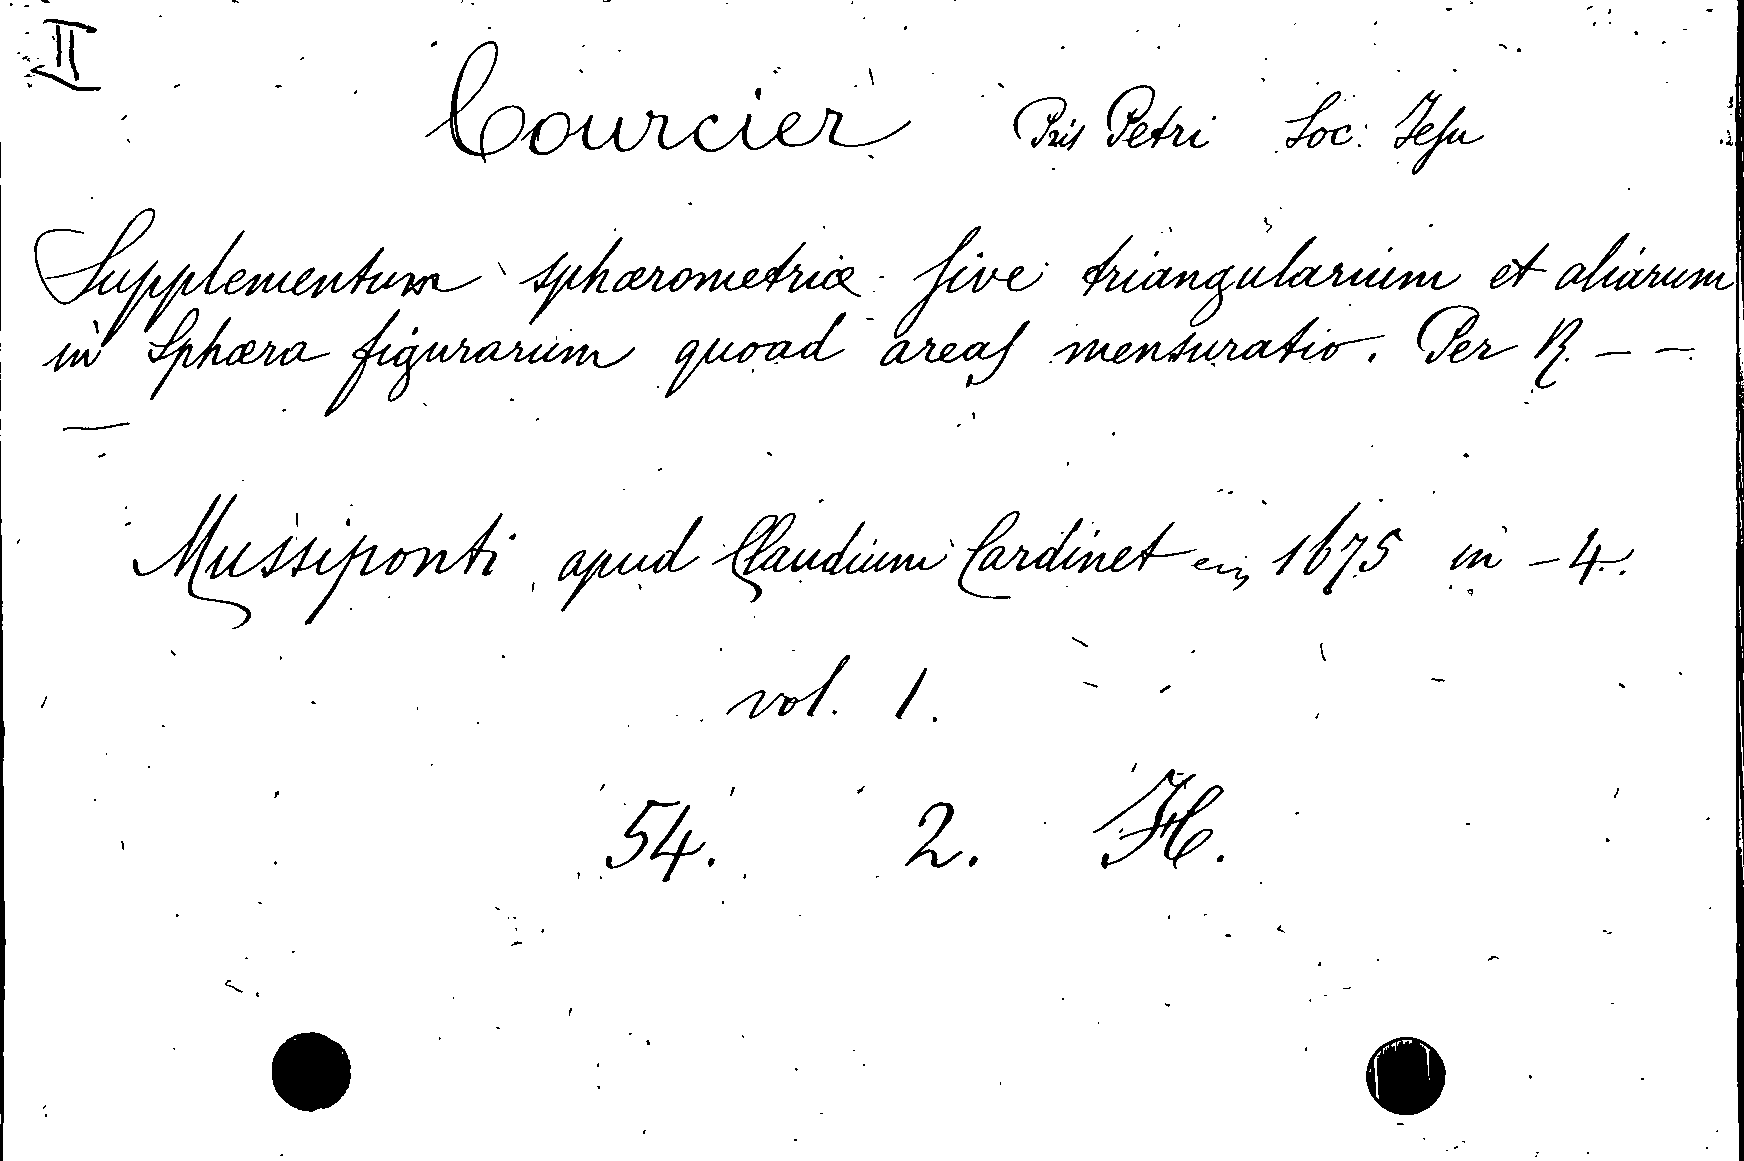 II
Courcier Pris Petri Soc: Jesu
Supplementum sphærometriæ sive triangularium et aliarum
in Sphæra figurarum quoad areas mensuratio. Per R. — —
—
Mussiponti apud Claudium Cardinet 1675 in-4.
vol. 1.
54. 2. H.